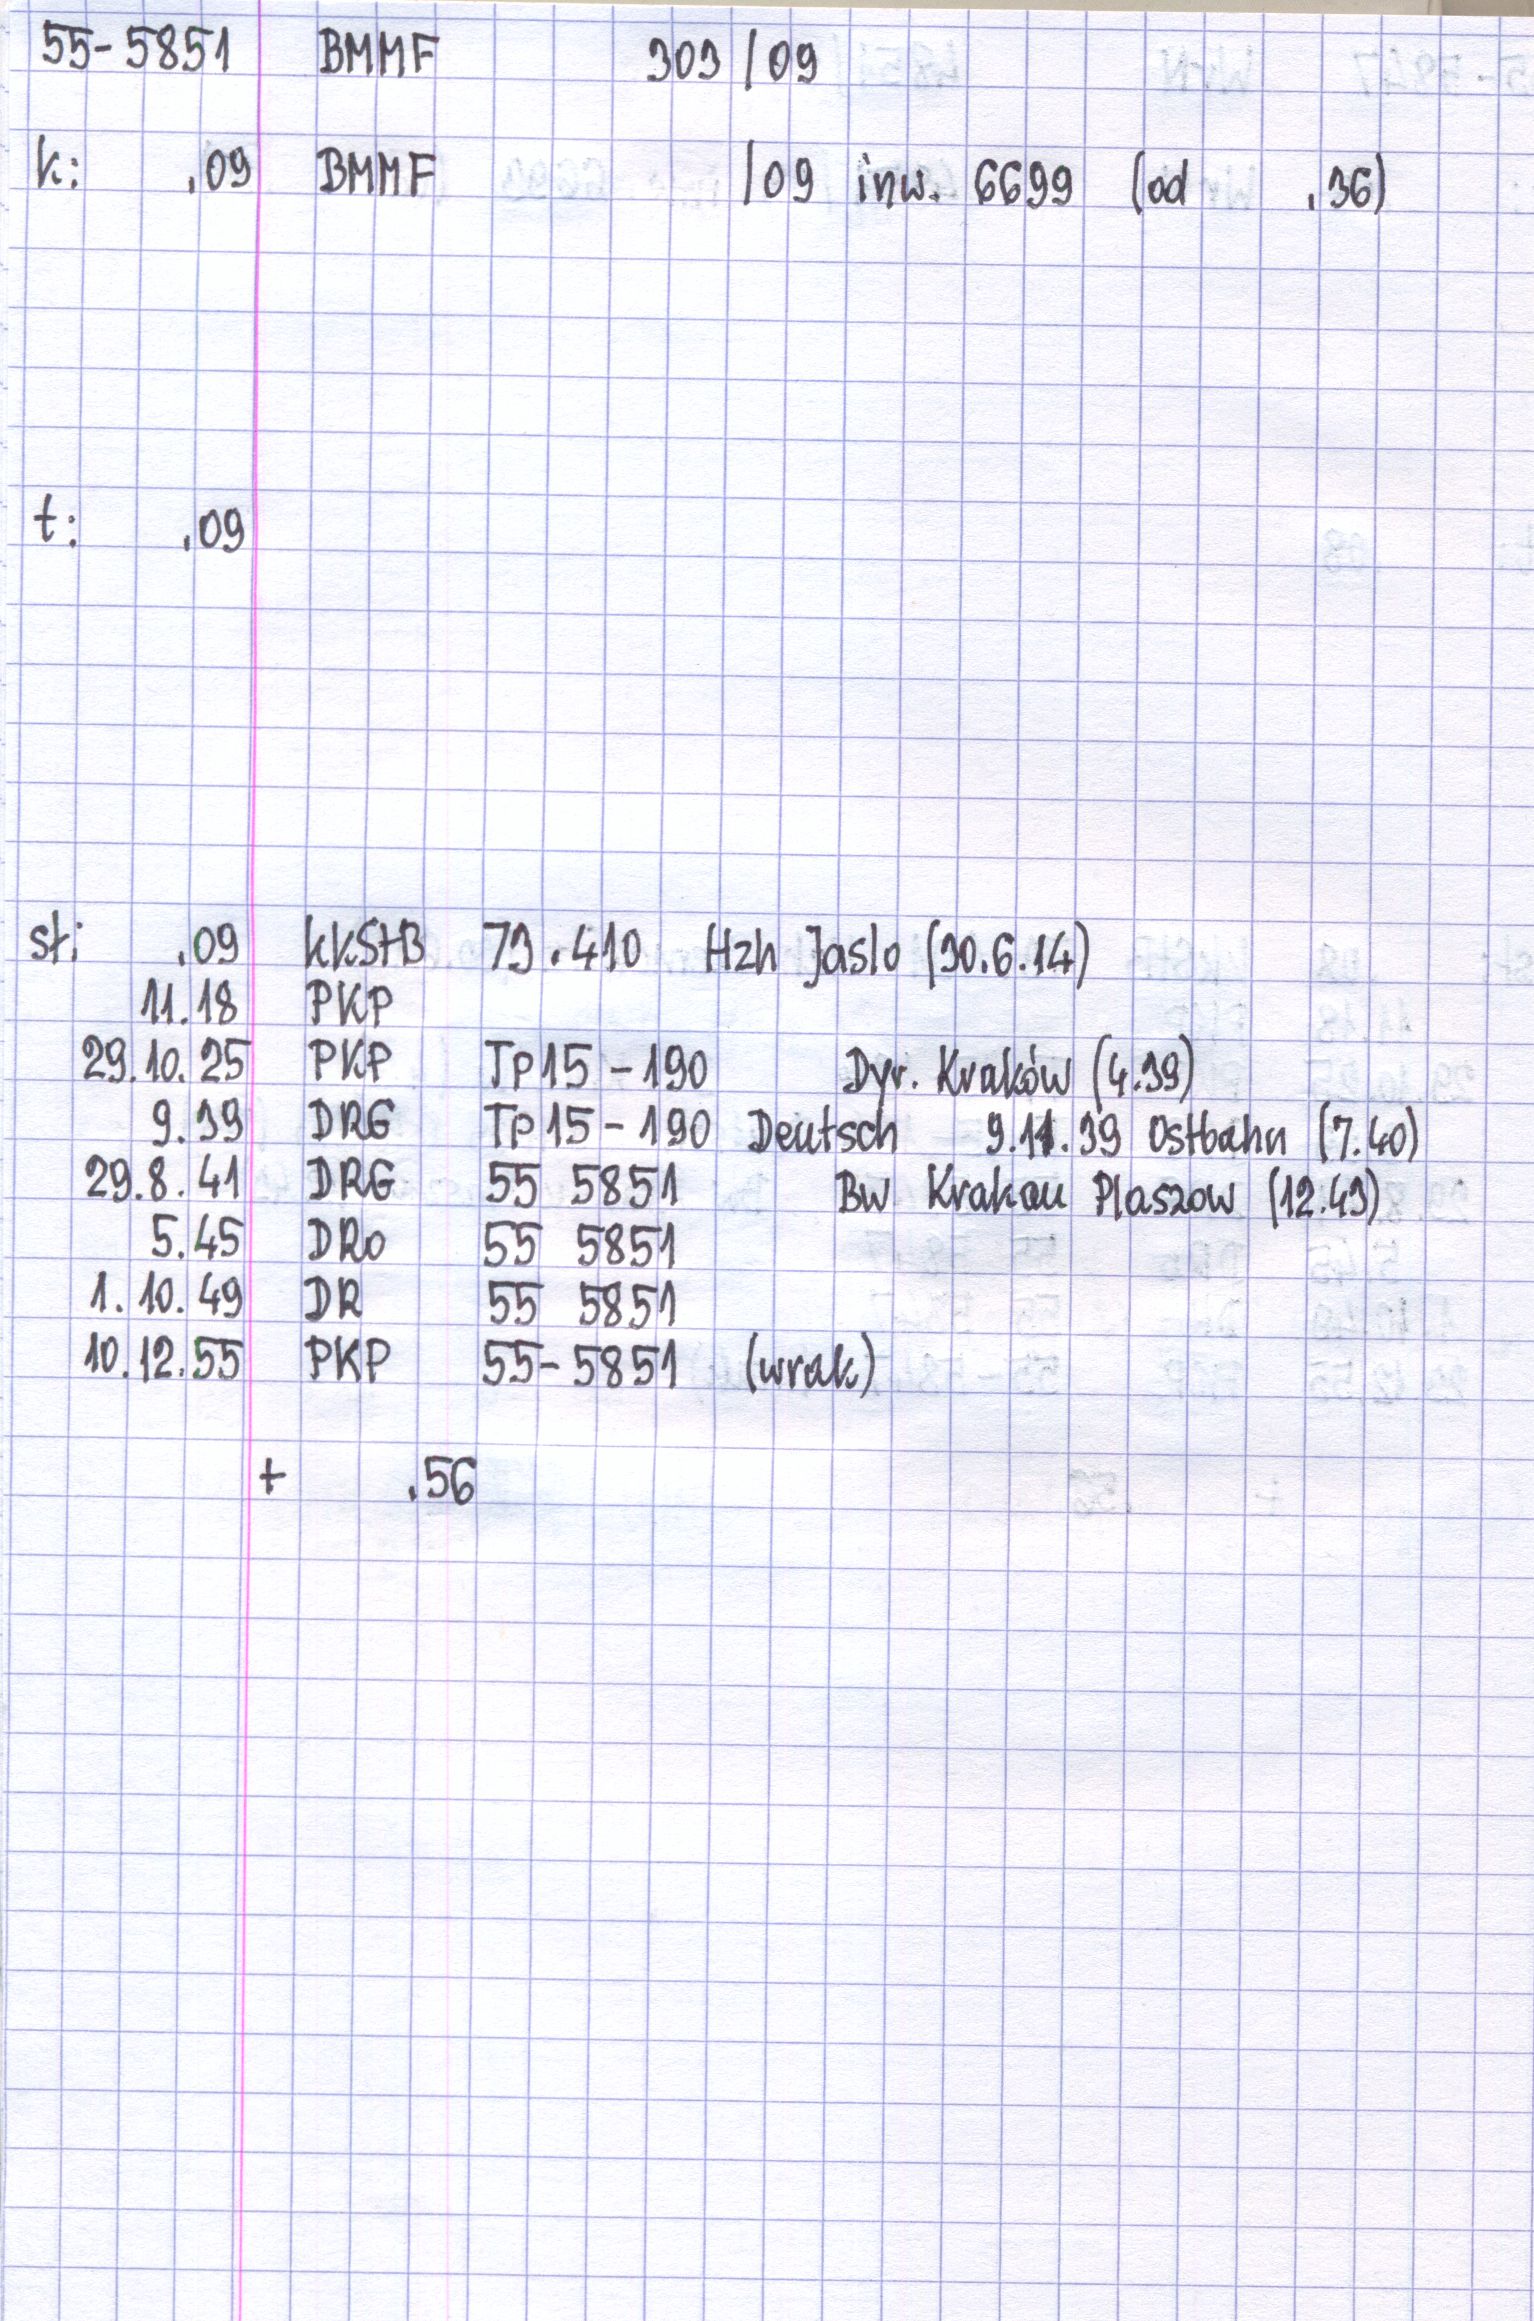 55-5851 BMMF 303/09
k: .09 BMMF /09 inw. 6699 (od .36)
t: .09
st: .09 kkStB 73.410 Hzh Jaslo (30.6.14)
11.18 PKP
29.10.25 PKP Tp15-190 Dyr. Kraków (4.39)
9.39 DRG Tp15-190 Deutsch 9.11.39 Ostbahn (7.40)
29.8.41 DRG 55 5851 Bw Krakau Plaszow (12.43)
5.45 DRo 55 5851
1.10.49 DR 55 5851
10.12.55 PKP 55-5851 (wrak)
+ .56